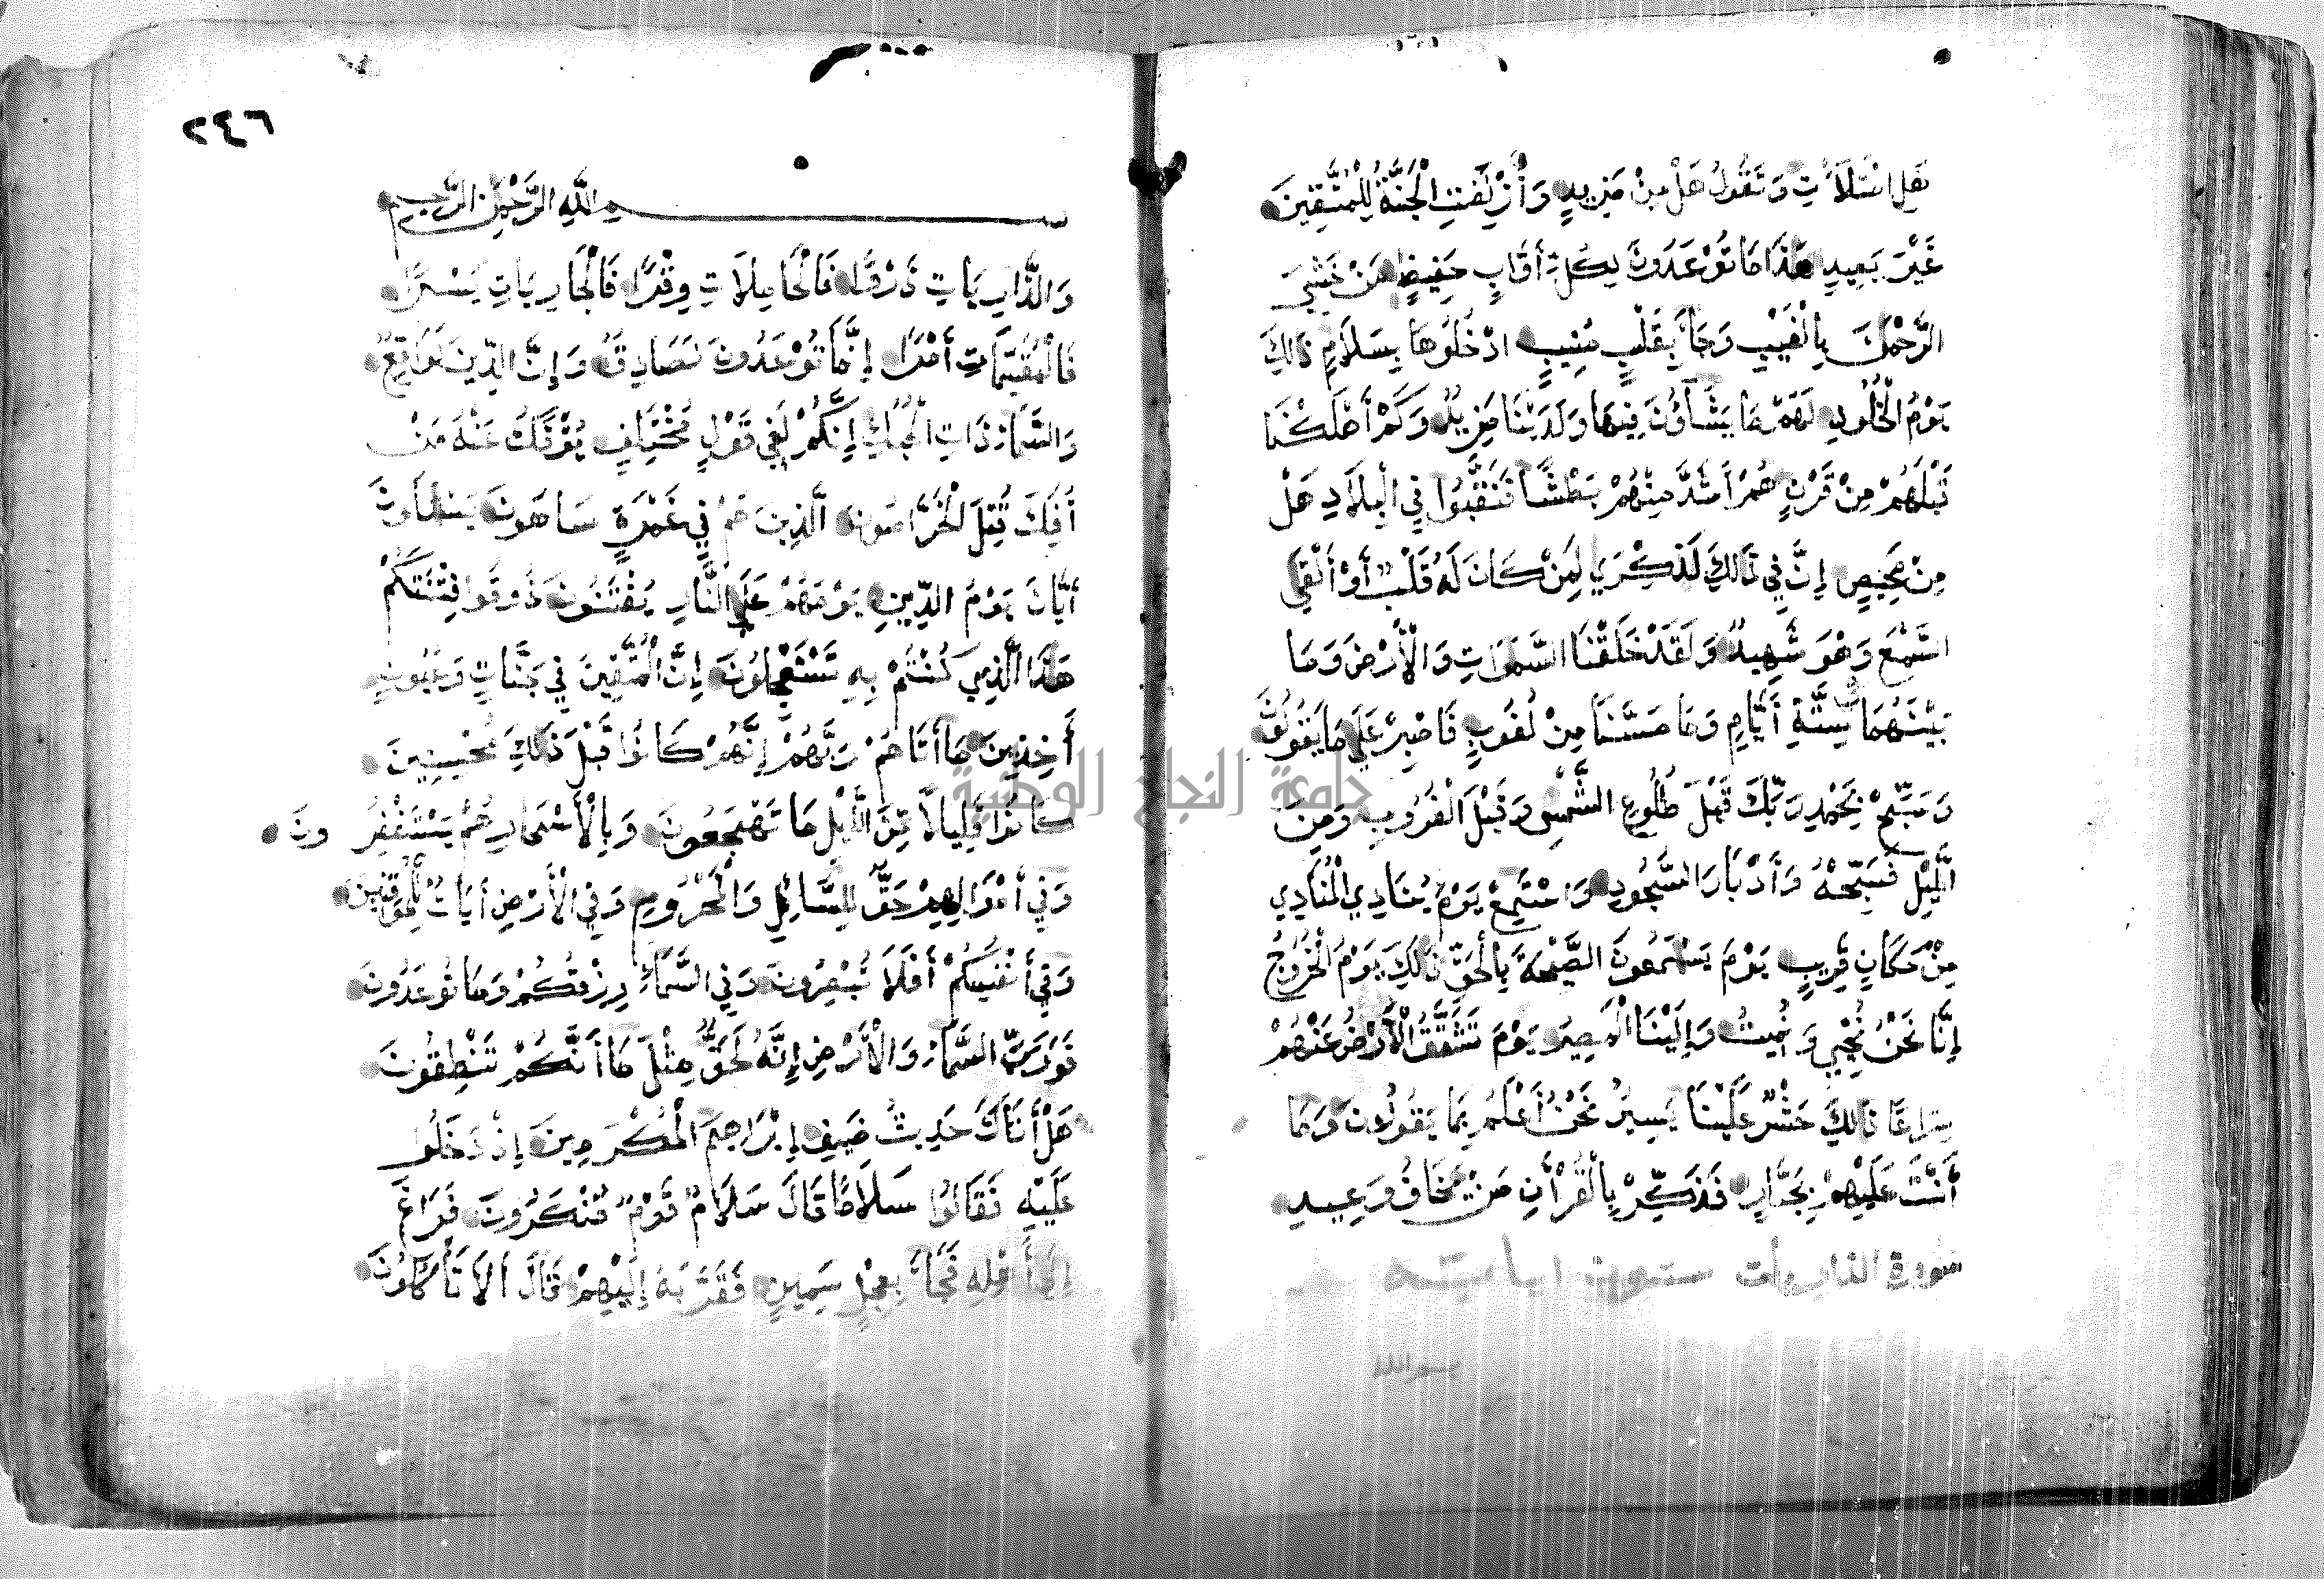 هَلِ امْتَلَأْتِ وَتَقُولُ هَلْ مِنْ مَزِيدٍ وَأُزْلِفَتِ الْجَنَّةُ لِلْمُتَّقِينَ
غَيْرَ بَعِيدٍ هَذَا مَا تُوعَدُونَ لِكُلِّ أَوَّابٍ حَفِيظٍ مَنْ خَشِيَ
الرَّحْمَنَ بِالْغَيْبِ وَجَاءَ بِقَلْبٍ مُنِيبٍ ادْخُلُوهَا بِسَلَامٍ ذَالِكَ
يَوْمُ الْخُلُودِ لَهُمْ مَا يَشَآؤُنَ فِيهَا وَلَدَيْنَا مَزِيدٌ وَكَمْ أَهْلَكْنَا
قَبْلَهُمْ مِنْ قَرْنٍ هُمْ أَشَدَّ مِنْهُمْ بَطْشًا فَنَقَّبُوا فِي الْبِلَادِ هَلْ
مِنْ مَحِيصٍ إِنَّ فِي ذَالِكَ لَذِكْرَي لِمَنْ كَانَ لَهُ قَلْبٌ أَوْ أَلْقَى
السَّمْعَ وَهُوَ شَهِيدٌ وَلَقَدْ خَلَقْنَا السَّمَوَاتِ وَالْأَرْضَ وَمَا
بَيْنَهُمَا فِي سِتَّةِ أَيَّامٍ وَمَا مَسَّنَا مِنْ لُغُوبٍ فَاصْبِرْ عَلَى مَا يَقُولُونَ
وَسَبِّحْ بِحَمْدِ رَبِّكَ قَبْلَ طُلُوعِ الشَّمْسِ وَقَبْلَ الْغُرُوبِ وَمِنَ
الَّيْلِ فَسَبِّحْهُ وَأَدْبَارَ السُّجُودِ وَاسْتَمِعْ يَوْمَ يُنَادِي الْمُنَادِي
مِنْ مَكَانٍ قَرِيبٍ يَوْمَ يَسْمَعُونَ الصَّيْحَةَ بِالْحَقِّ ذَالِكَ يَوْمُ الْخُرُوجِ
إِنَّا نَحْنُ نُحْيِي وَنُمِيتُ وَإِلَيْنَا الْمَصِيرُ يَوْمَ تَشَقَّقُ الْأَرْضُ عَنْهُمْ
سِرَاعًا ذَالِكَ حَشْرٌ عَلَيْنَا يَسِيرٌ نَحْنُ أَعْلَمُ بِمَا يَقُولُونَ وَمَا
أَنْتَ عَلَيْهِمْ بِجَبَّارٍ فَذَكِّرْ بِالْقُرْآنِ مَنْ يَخَافُ وَعِيدِ
سورة الذاريات ستون اياة
بسم الله
٢٤٢
بسم اللَّهِ الرَّحْمَنِ الرَّحِيمِ
وَالذَّارِيَاتِ ذَرْوًا فَالْحَامِلَاتِ وِقْرًا فَالْجَارِيَاتِ يُسْرًا
فَالْمُقَسِّمَاتِ أَمْرًا إِنَّمَا تُوعَدُونَ لَصَادِقٌ وَإِنَّ الدِّينَ لَوَاقِعٌ
وَالسَّمَاءِ ذَاتِ الْحُبُكِ إِنَّكُمْ لَفِي قَوْلٍ مُخْتَلِفٍ يُؤْفَكُ عَنْهُ مَنْ
أُفِكَ قُتِلَ الْخَرَّاصُونَ الَّذِينَ هُمْ فِي غَمْرَةٍ سَاهُونَ يَسْئَلُونَ
أَيَّانَ يَوْمُ الدِّينِ يَوْمَهُمْ عَلَى النَّارِ يُفْتَنُونَ ذُوقُوا فِتْنَتَكُمْ
هَذَا الَّذِي كُنْتُمْ بِهِ تَسْتَعْجِلُونَ إِنَّ الْمُتَّقِينَ فِي جَنَّاتٍ وَعُيُونٍ
أَخِذِينَ مَا أَتَاهُمْ رَبُّهُمْ إِنَّهُمْ كَانُوا قَبْلَ ذَلِكَ مُحْسِنِينَ
كَانُوا قَلِيلًا مِنَ الَّيْلِ مَا يَهْجَعُونَ وَبِالْأَسْحَارِ هُمْ يَسْتَغْفِرُ ونَ
وَفِي أَمْوَالِهِمْ حَقٌّ لِلسَّائِلِ وَالْمَحْرُومِ وَفِي الْأَرْضِ أَيَاتٌ لِلْمُوقِنِينَ
وَفِي أَنْفُسِكُمْ أَفَلَا تُبْصِرُونَ وَفِي السَّمَاءِ رِزْقُكُمْ وَمَا تُوعَدُونَ
فَوَرَبِّ السَّمَاءِ وَالْأَرْضِ إِنَّهُ لَحَقٌّ مِثْلَ مَا أَنَّكُمْ تَنْطِقُونَ
هَلْ أَتَاكَ حَدِيثُ ضَيْفِ إِبْرَاهِيمَ الْمُكْرَمِينَ إِذْ دَخَلُوا
عَلَيْهِ فَقَالُوا سَلَامًا قَالَ سَلَامٌ قَوْمٌ مُنْكَرُونَ فَرَاغَ
إِلَى أَهْلِهِ فَجَاءَ بِعِجْلٍ سَمِينٍ فَقَرَّبَهُ إِلَيْهِمْ قَالَ أَلَا تَأْكُلُونَ
جامعة النجاح الوطنية